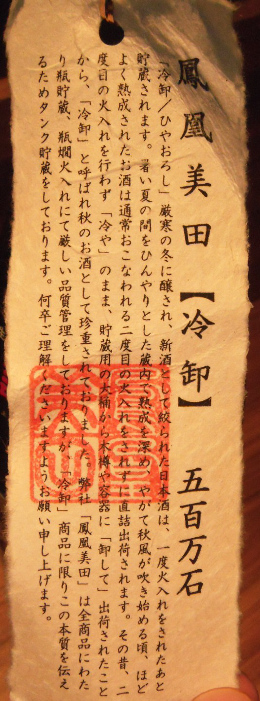 鳳凰美田【冷卸】 五百万石
「冷卸/ひやおろし」厳寒の冬に醸され、新酒として絞られた日本酒は、一度火入れをされたあと
貯蔵されます。暑い夏の間をひんやりとした蔵内で熟成を深め、やがて秋風が吹き始める頃、ほど
よく熟成されたお酒は通常おこなわれる二度目の火入れをされずに直詰出荷されます。その昔、二
度目の火入れを行わず「冷や」のまま、貯蔵用の大桶から木樽や容器に「卸して」出荷されたこと
から、「冷卸」と呼ばれ秋のお酒として珍重されておりました。弊社「鳳凰美田」は全商品にわた
り瓶貯蔵、瓶燗火入れにて厳しい品質管理をしておりますが、「冷卸」商品に限りこの本質を伝え
るためタンク貯蔵をしております。何卒ご理解くださいますようお願い申し上げます。